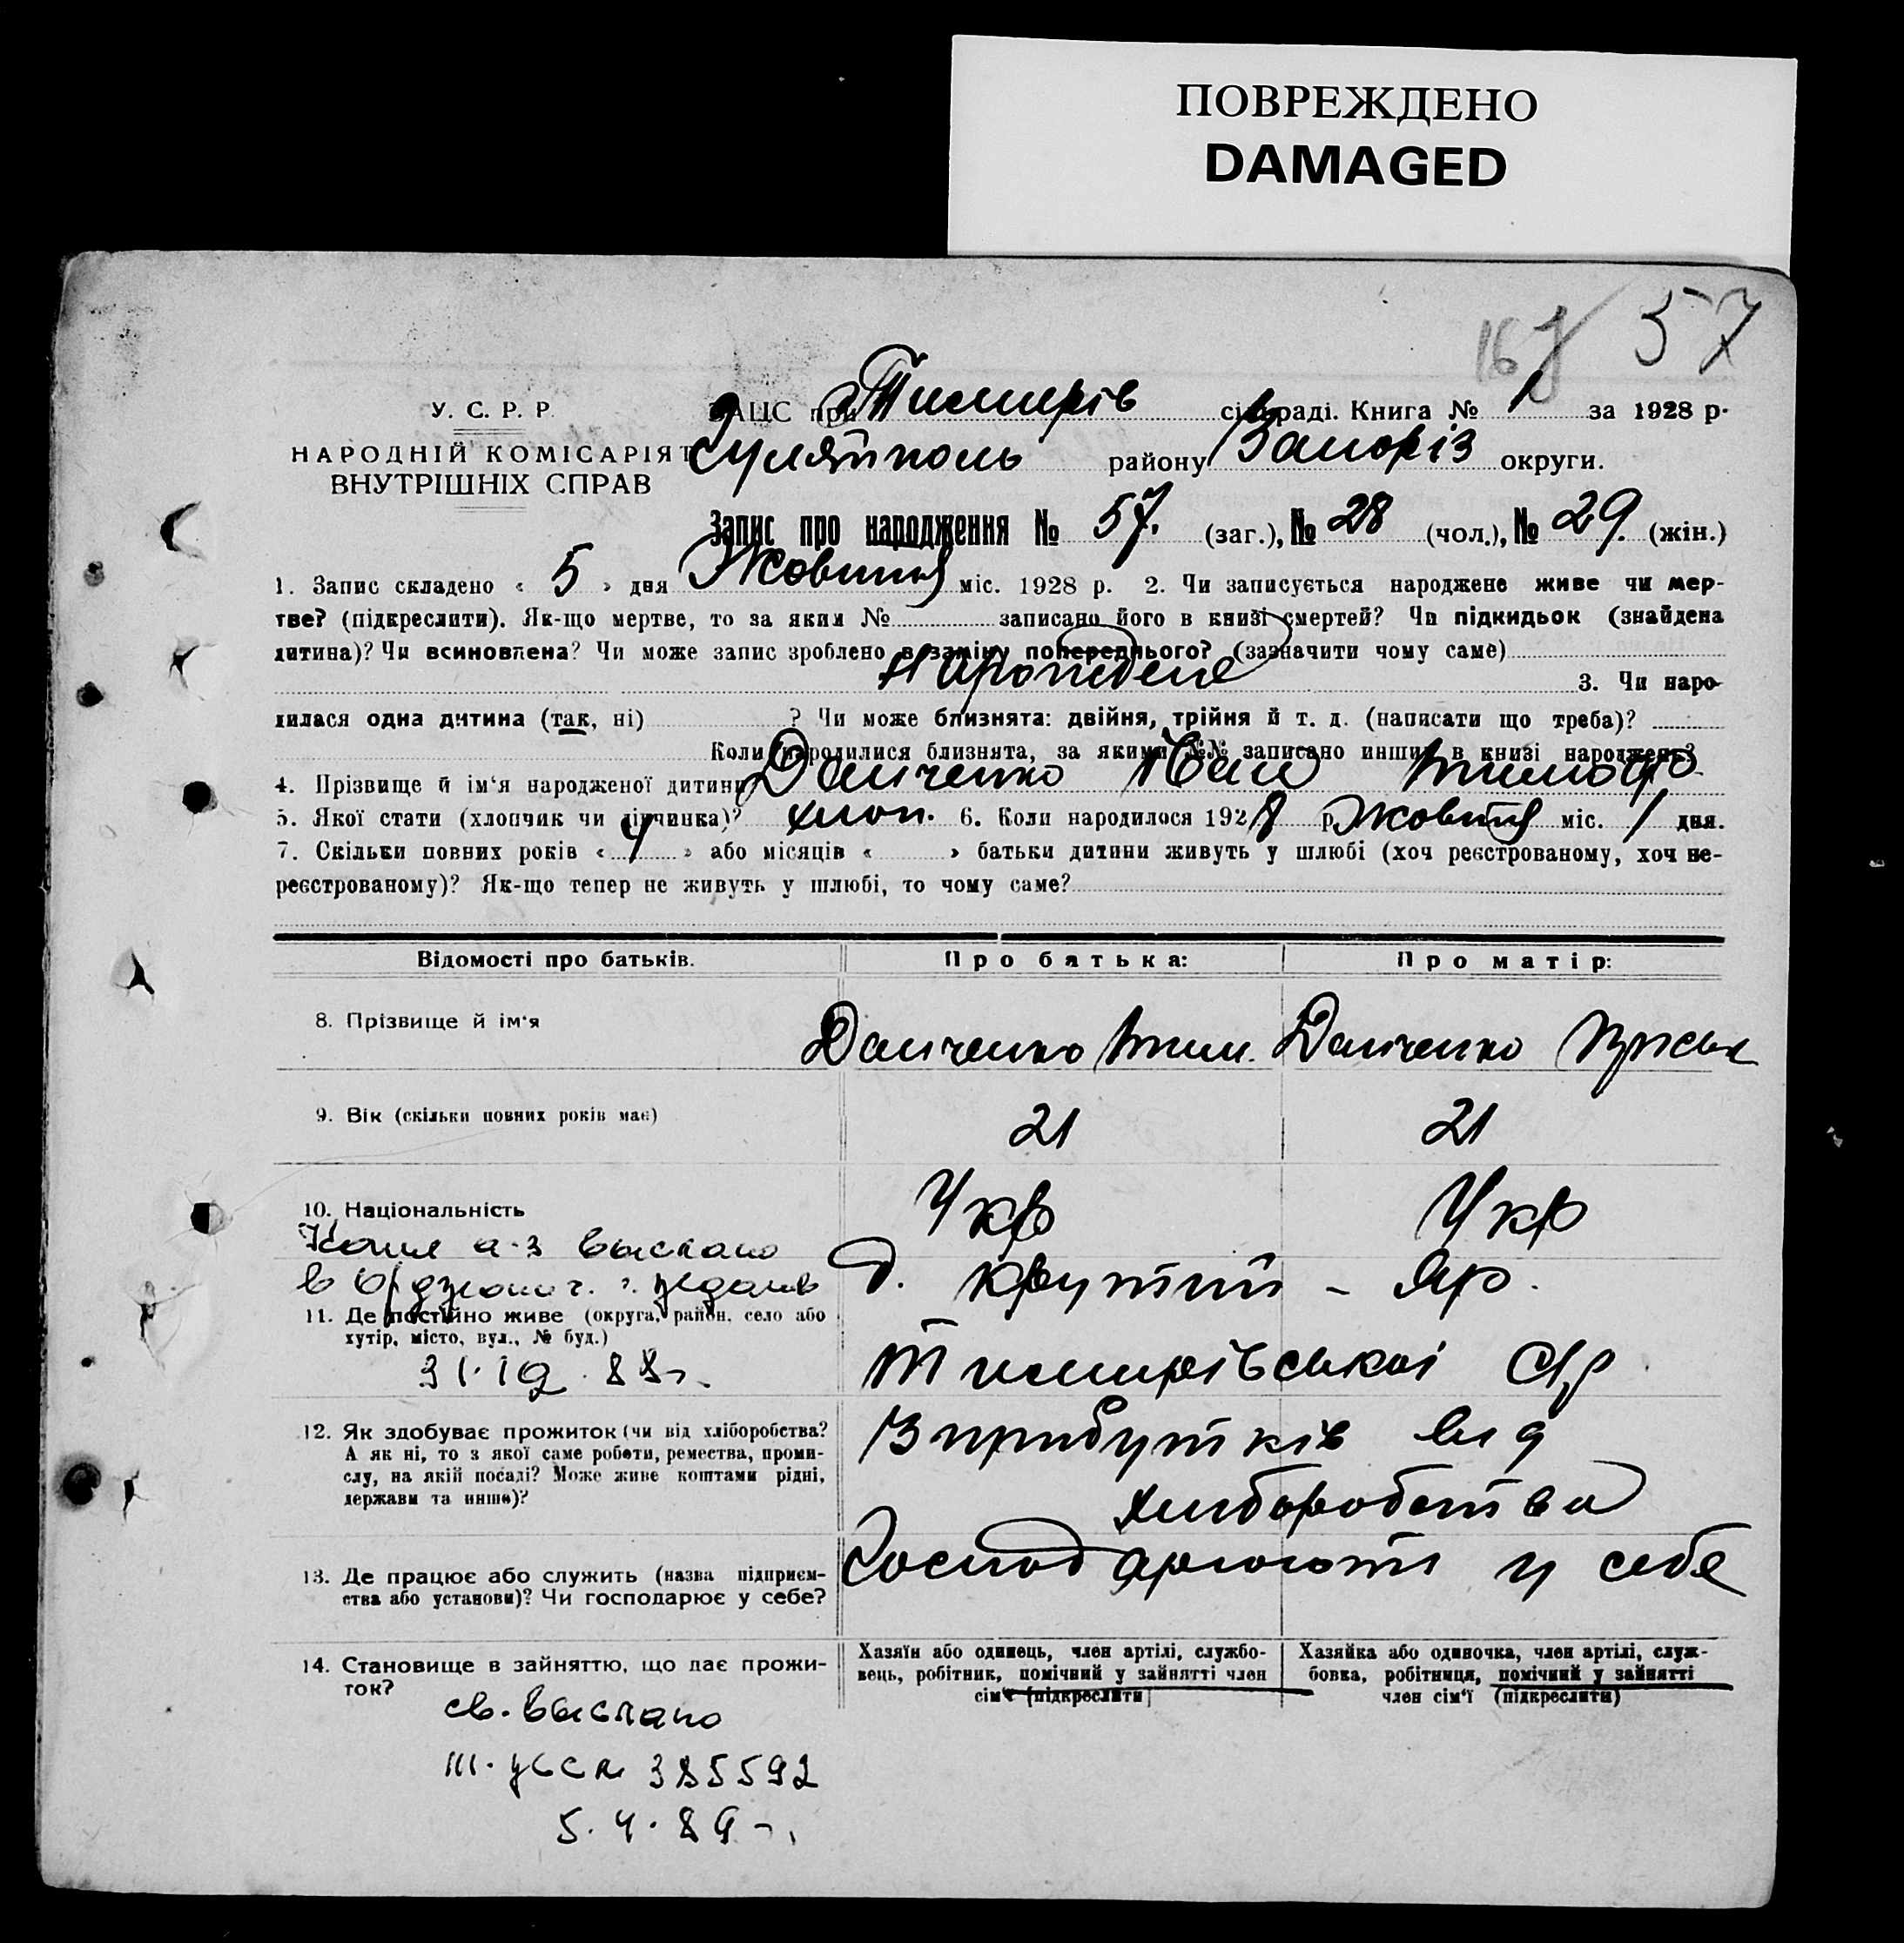 ПОВРЕЖДЕНО
DAMAGED
167 57
У. С. Р. Р.
НАРОДНІЙ КОМІСАРІЯТ
ВНУТРІШНІХ СПРАВ
ЗАЦС при Темирів сільраді. Книга № 1 за 1928 р.
Гуляйполь району Запоріз округи.
Запис про народження № 57. (заг.), № 28 (чол.), № 29. (жін.)
1. Запис складено « 5 » дня Жовтня міс. 1928 р. 2. Чи записується народжене живе чи мер-
тве? (підкреслити). Як-що мертве, то за яким № записано його в книзі смертей? Чи підкидьок (знайдена
дитина)? Чи всиновлена? Чи може запис зроблено в заміну попереднього? (зазначити чому саме)
3. Чи наро-
дилася одна дитина (так, ні) ? Чи може близнята: двійня, трійня й т. д. (написати що треба)?
Коли народилися близнята, за якими №№ записано инших в книзі народжень?
4. Прізвище й ім'я народженої дитини Данченко Іван Тимофр
5. Якої стати (хлопчик чи дівчинка)? хлоп. 6. Коли народилося 1928 р. Жовтня міс. 1 дня.
7. Скільки повних років « 4 » або місяців « » батьки дитини живуть у шлюбі (хоч реєстрованому, хоч не-
реєстрованому)? Як-що тепер не живуть у шлюбі, то чому саме?
Відомості про батьків. Про батька: Про матір:
8. Прізвище й ім'я Данченко Тим. Данченко
9. Вік (скільки повних років має) 21 21
10. Національність Укр Укр
выслано
в
11. Де постійно живе (округа, район, село або
хутір, місто, вул., № буд.)
д. Крутий - Яр.
Темирівської С/р
88г.
12. Як здобуває прожиток (чи від хліборобства?
А як ні, то з якої саме роботи, ремества, проми-
слу, на якій посаді? Може живе коштами рідні,
держави та инше)?
З прибутків від
хліборобства
13. Де працює або служить (назва підприєм-
ства або установи)? Чи господарює у себе?
Господарюють у себе
14. Становище в зайняттю, що дає прожи-
ток?
Хазяїн або одинець, член артілі, службо-
вець, робітник, помічний у зайнятті член
сім'ї (підкреслити)
Хазяйка або одиночка, член артілі, служ-
бовка, робітниця, помічний у зайнятті
член сім'ї (підкреслити)
св. выслано
385592
5.4.89г.